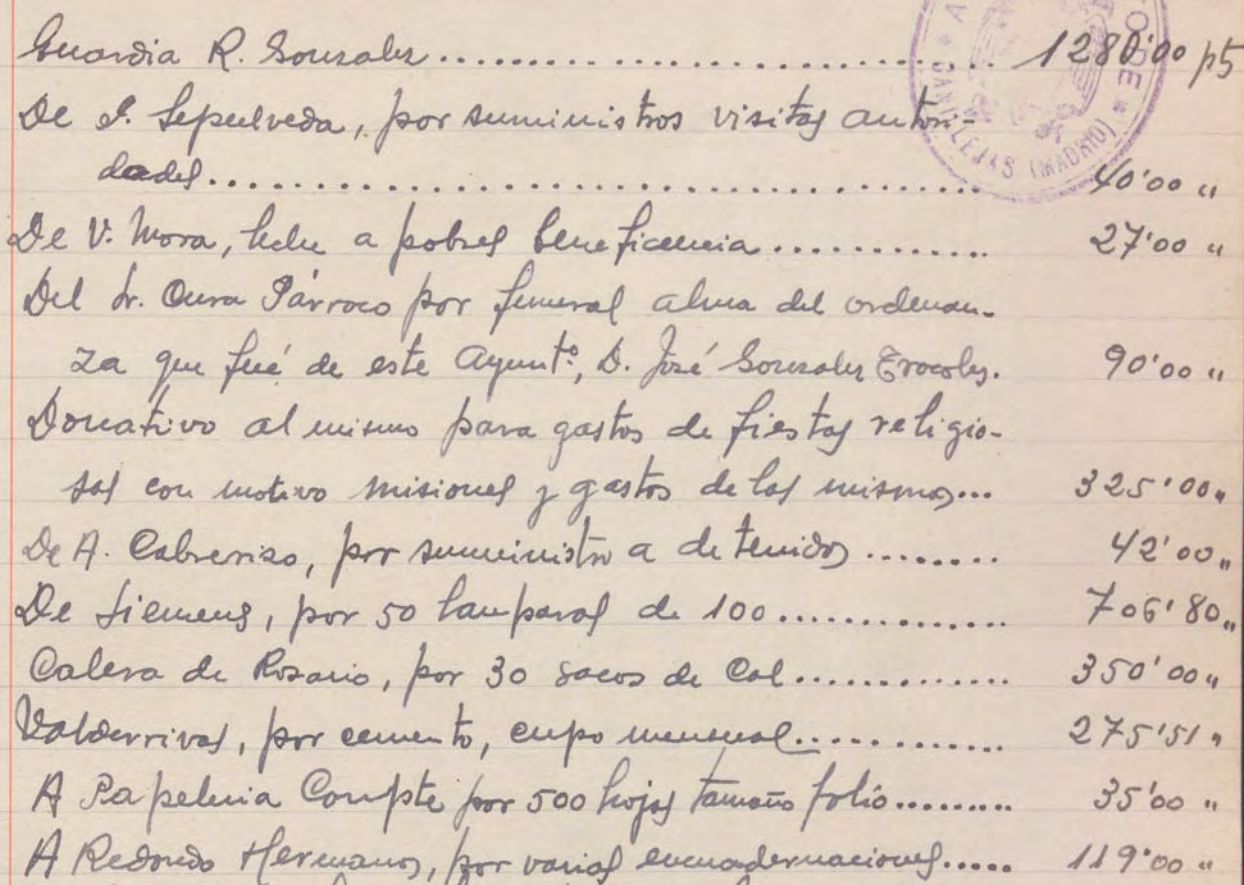 Guardia R. Gonzalez .............................. 1280'00 pts
De S. Sepulveda, por suministros visitas autori-
dades ............................................. 40'00 "
De V. Mora, leche a pobres beneficencia ............. 27'00 "
Del Sr. Cura Párroco por funeral alma del ordenan-
za que fué de este Ayuntº, D. José Gonzalez 90'00 "
Donativo al mismo para gastos de fiestas religio-
sas con motivo misiones y gastos de las mismas... 325'00 "
De A. Cabrerizo, por suministro a detenidos ........ 42'00 "
De Siemens, por 50 lamparas de 100 .............. 706'80 "
Calera de Rosario, por 30 sacos de Cal ............. 350'00 "
Valderrivas, por cemento, cupo mensual ............ 275'51 "
A Papeleria Compte por 500 hojas tamaño folio ......... 35'00 "
A Redondo Hermanos, por varias encuadernaciones ..... 119'00 "
CANILLEJAS (MADRID)